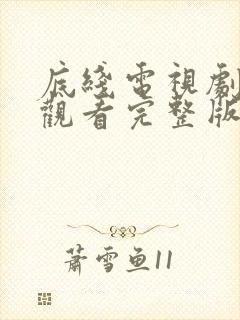 底綫電視劇
觀看完整版
蕭雪鱼11